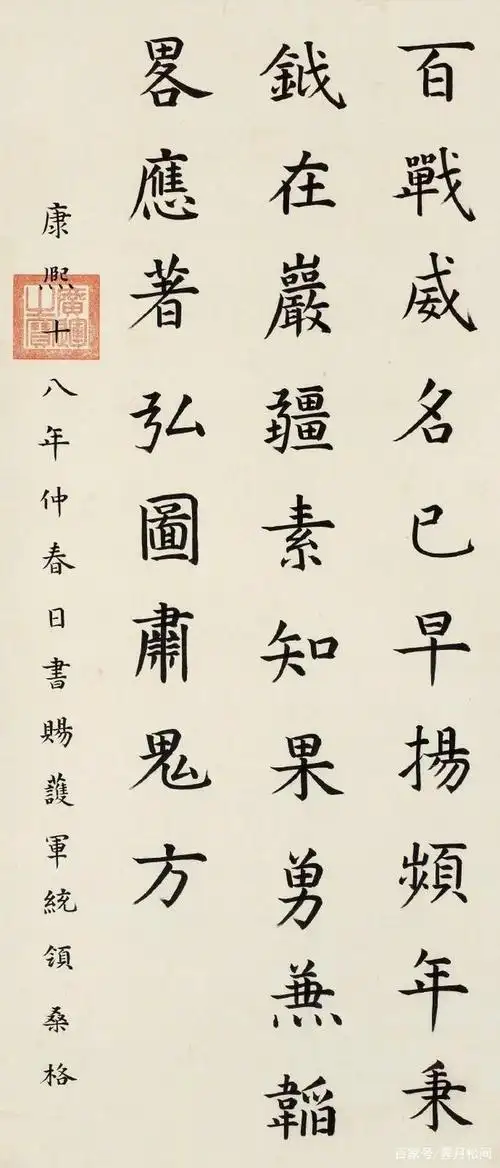 百戰威名已早揚頻年秉
鉞在巖疆素知果勇兼韜
畧應著弘圖肅鬼方
康熙十八年仲春日書賜護軍統領桑格
廣運之寶
百家号/霁月松间